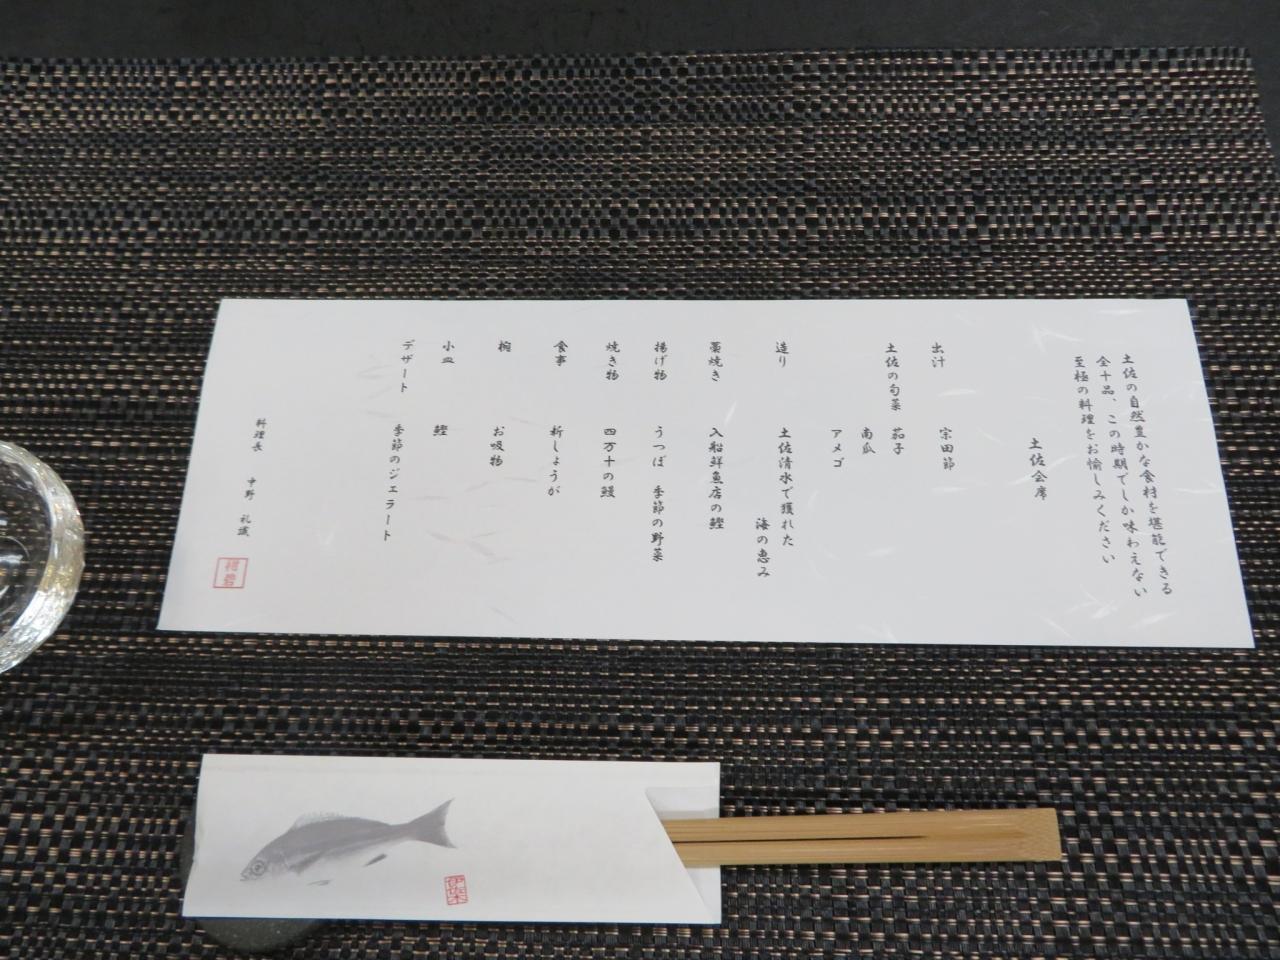 土佐の自然豊かな食材を堪能できる
全十品、この時期でしか味わえない
至極の料理をお愉しみください
土佐会席
出汁 宗田節
土佐の旬菜 茄子
南瓜
アメゴ
造り 土佐清水で獲れた
海の恵み
藁焼き 入船鮮魚店の鰹
揚げ物 うつぼ 季節の野菜
焼き物 四万十の鰻
食事 新しょうが
椀 お吸物
小皿 鰹
デザート 季節のジェラート
料理長 中野 礼